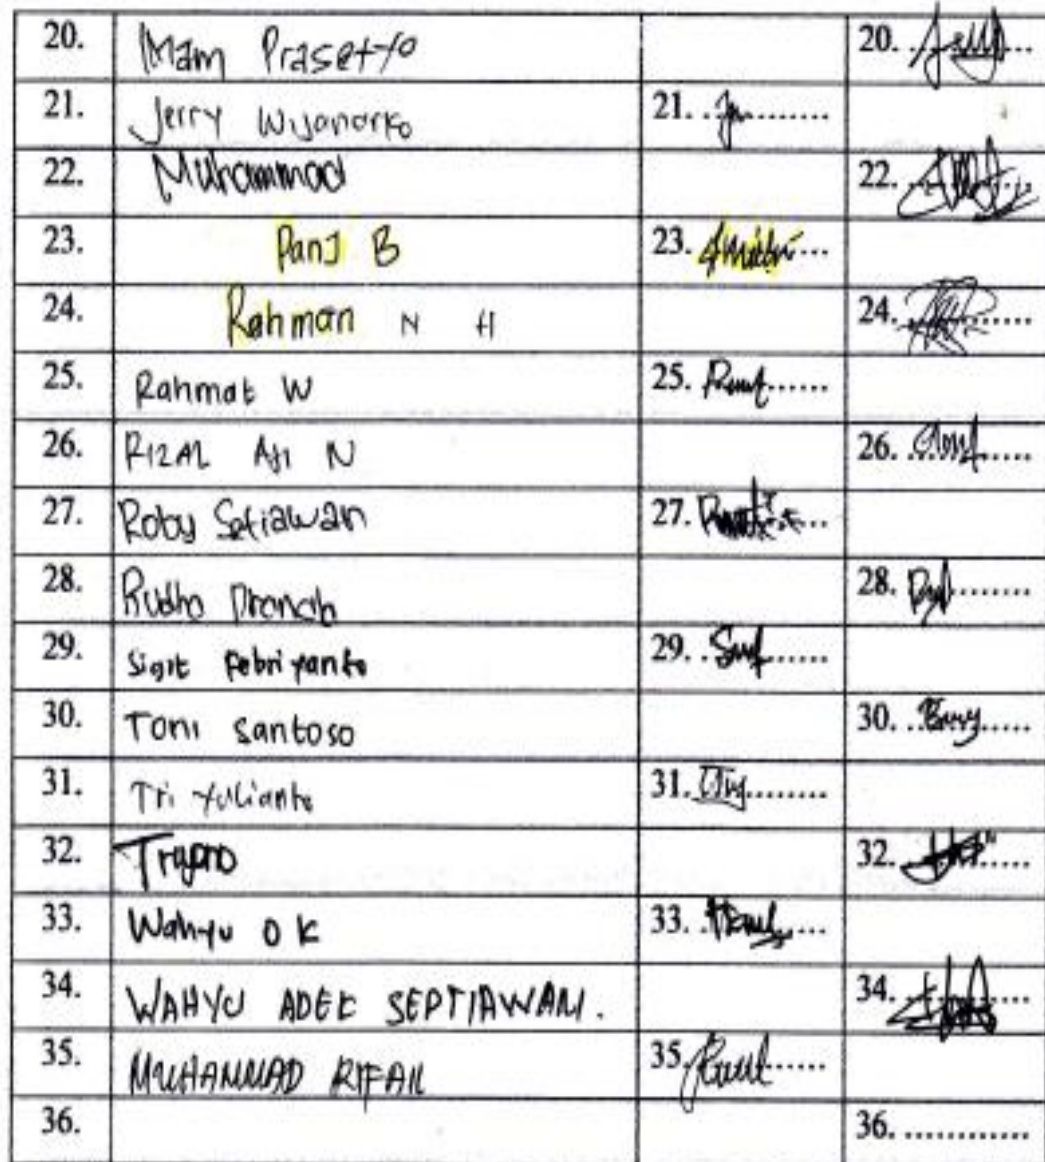 20. Imam Prasetyo 20. ............
21. Jerry Wijanarko 21. ............
22. Muhammad 22. ............
23. Panji B 23. ............
24. Rahman N H 24. ............
25. Rahmat W 25. ............
26. RIZAL AJI N 26. ............
27. Roby Setiawan 27. ............
28. 28. ............
29. Sigit Febriyanto 29. ............
30. Toni Santoso 30. ............
31. Tri Yulianto 31. ............
32. 32. ............
33. Wahyu O K 33. ............
34. WAHYU ADEK SEPTIAWAN. 34. ............
35. MUHAMMAD RIFAI 35. ............
36. 36. ............